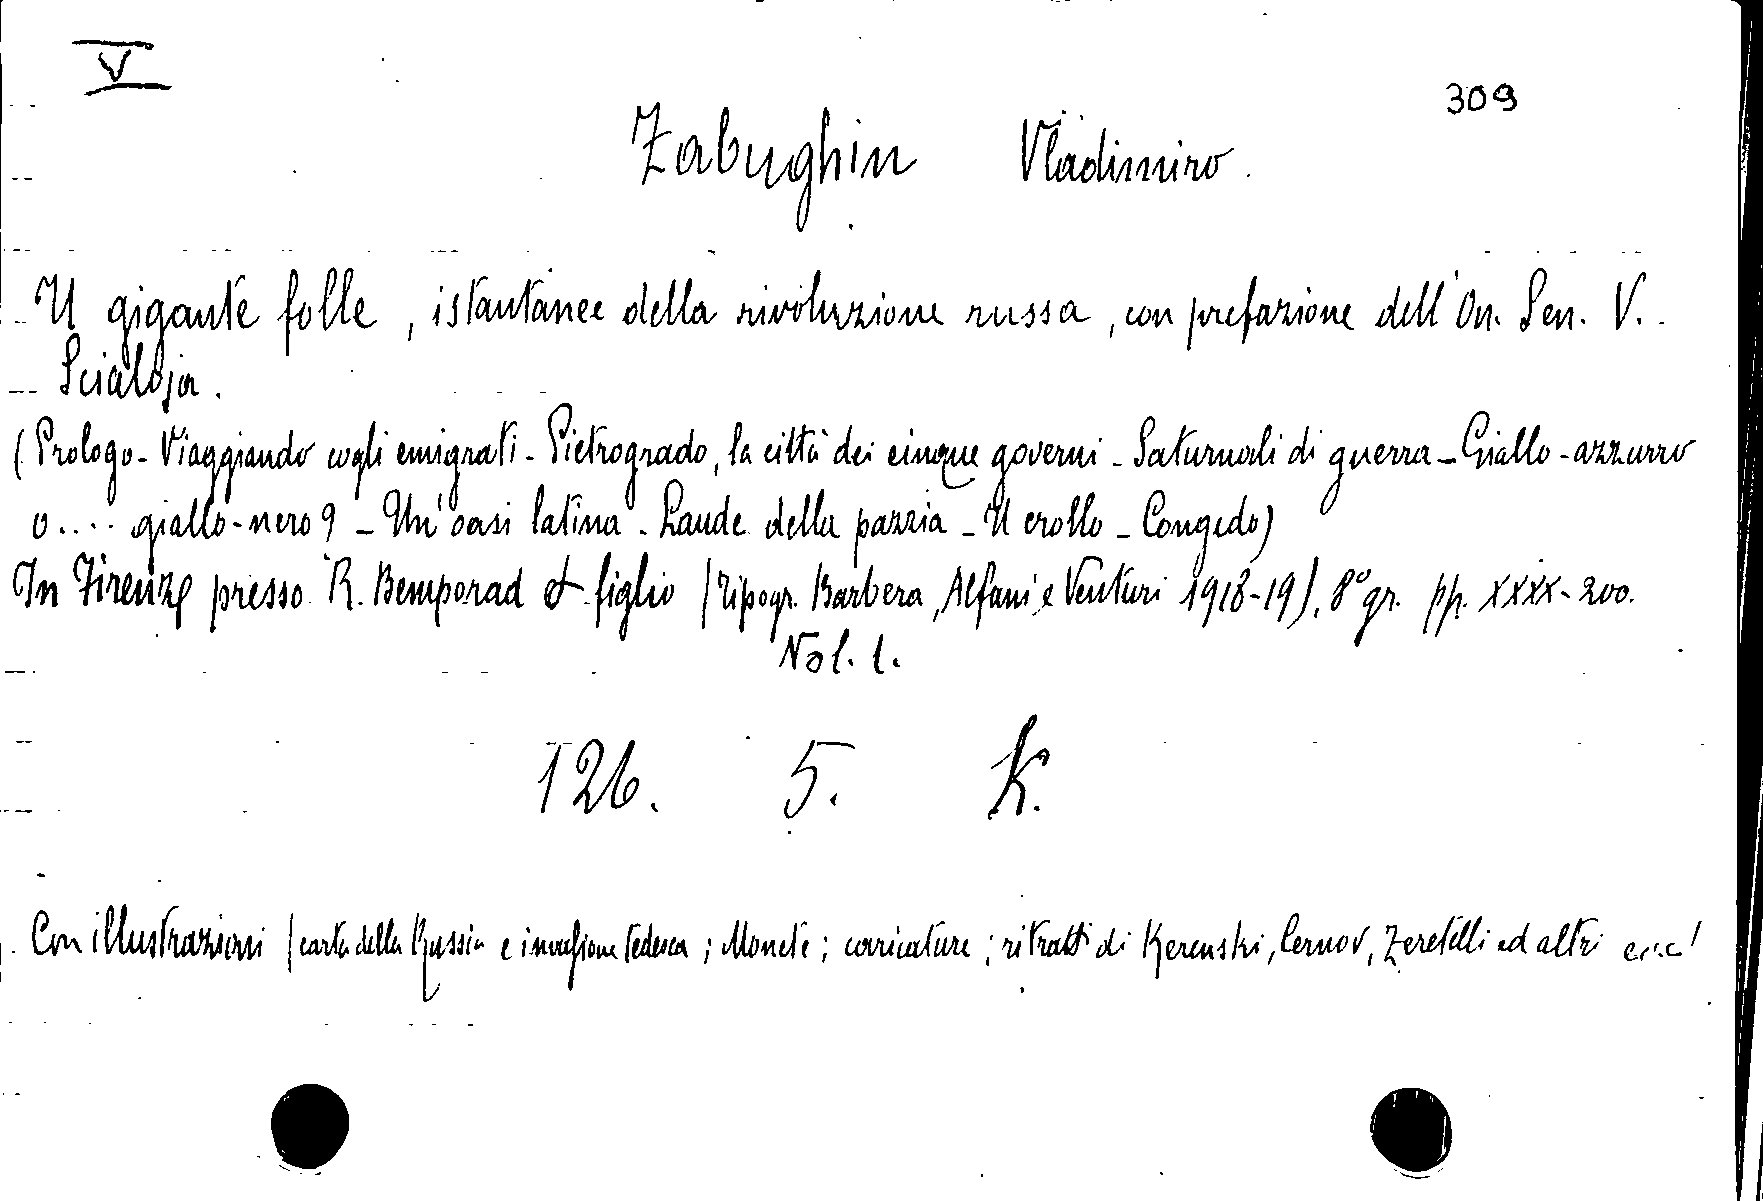 V
309
Zabughin Vladimiro.
Il gigante folle, istantanee della rivoluzione russa, con prefazione dell'On. Sen. V.
Scialoja.
(Prologo - Viaggiando cogli emigrati - Pietrogrado, la città dei cinque governi - Saturnali di guerra - Giallo-azzurro
o.... giallo-nero? - Un'oasi latina - Laude della pazzia - Il crollo - Congedo)
In Firenze presso R. Bemporad & figlio (Tipogr. Barbera, Alfani e Venturi 1918-19), 8° gr. pp. XXXX-200.
Vol. 1.
126. 5. K.
Con illustrazioni (carta della Russia e invasione tedesca; Monete; caricature; ritratti di Kerenski, Cernov, Zeretelli ed altri ecc.)